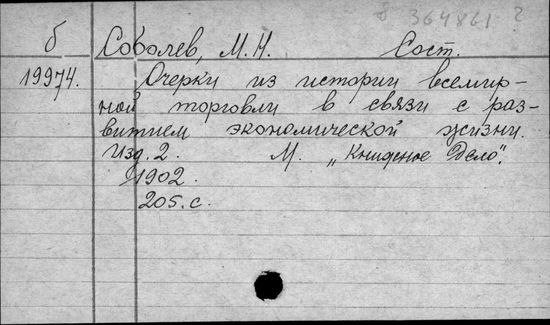 в 364861 2
б Соболев, М.Н. Сост.
19974. Очерки из истории всемир-
ной торговли в связи с раз-
витием экономической жизни.
Изд. 2. М. „Книжное Дело".
1902.
205 с.